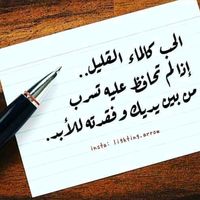 الحب كالماء القليل..
إذا لم تحافظ عليه تسرب
من بين يديك و فقدته للأبد.
insta: lighting.arrow